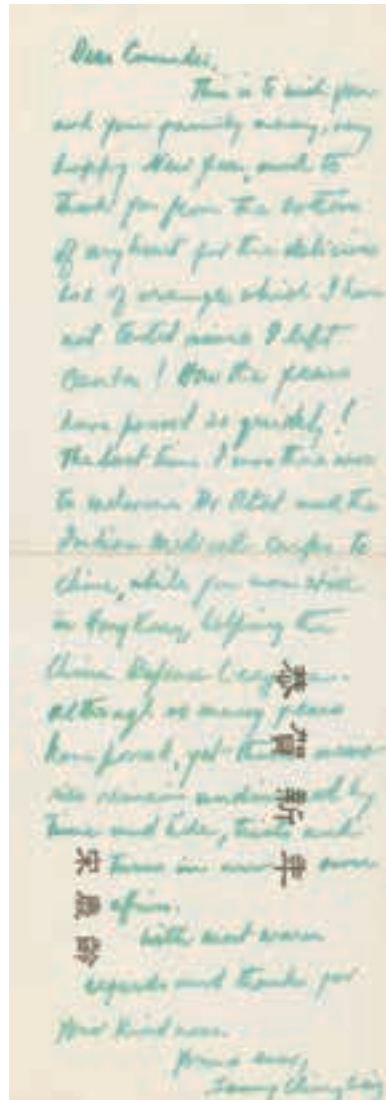 Dear Comrade,
This is to wish you
and your family many, very
happy New Year, and to
thank you from the bottom
of my heart for the delicious
box of oranges which I have
not tasted since I left
Canton! How the years
have passed so quickly!
The last time I was there was
to welcome Dr Atal and the
Indian Medical Corps to
China, while you were still
in Hong Kong, helping the
China Defence League.
Although so many years
have passed, yet these
remain undimmed by
time and tide,
turns in our own
affairs.
With most warm
regards and thanks for
your kindness.
Yours ever,
Soong Ching Ling
恭賀新年
宋慶齡